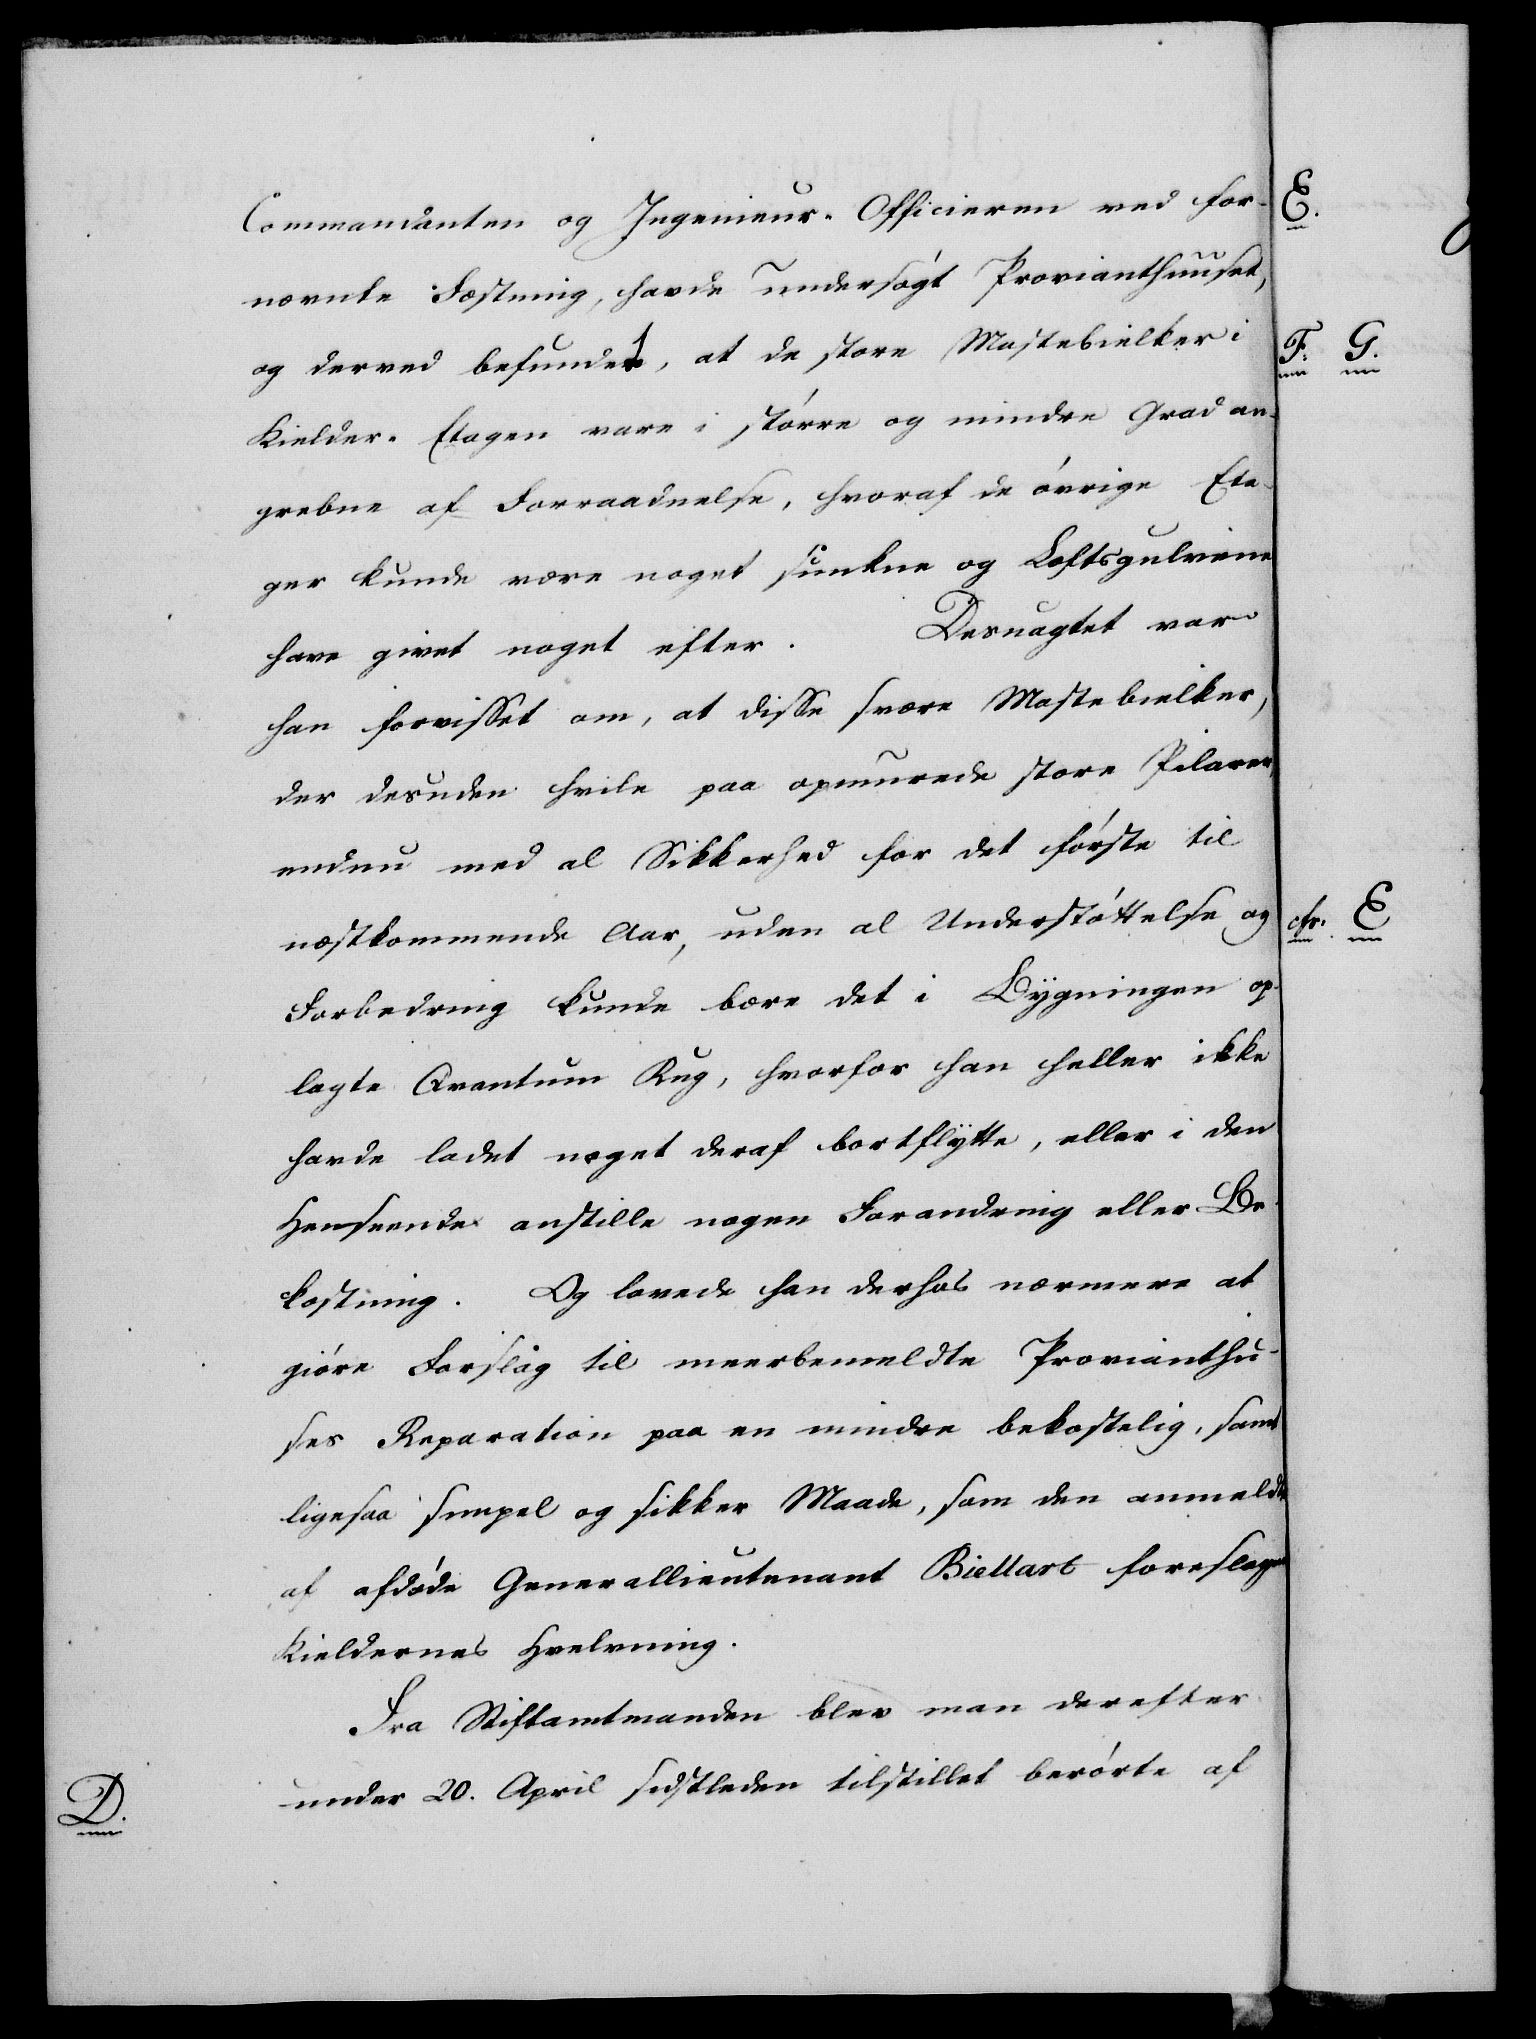 Commandanten og Ingenieur-Officieren ved for-
nævnte Fæstning, havde undersøgt Provianthuuset,
og derved befundet, at de store Mastebielker i
Kielder-Etagen vare i større og mindre Grad an-
grebne af Forraadnelse, hvoraf de øvrige Eta-
ger kunde være noget sunkne og Loftsgulvene
have givet noget efter. Desuagtet var
han forvisset om, at disse svære Mastebielker,
der desuden hvile paa opmurede store Pilarer,
endnu med al Sikkerhed for det første til
næstkommende Aar, uden al Understøttelse og
Forbedring kunde bære det i Bygningen op-
lagte Qvantum Rug, hvorfor han heller ikke
havde ladet noget deraf bortflytte, eller i den
Henseende anstille nogen Forandring eller Be-
kostning. Og lovede han derhos nærmere at
giøre Forslag til meerbemeldte Provianthu-
ses Reparation paa en mindre bekostelig, samt
ligesaa simpel og sikker Maade, som den anmeldte
af afdøde Generallieutenant Biellart foreslagne
Kieldernes Hvelvning.
Fra Stiftamtmanden blev man derefter
under 20. April sidstleden tilstillet berørte af
D.
E.
F. G.
cfr. E